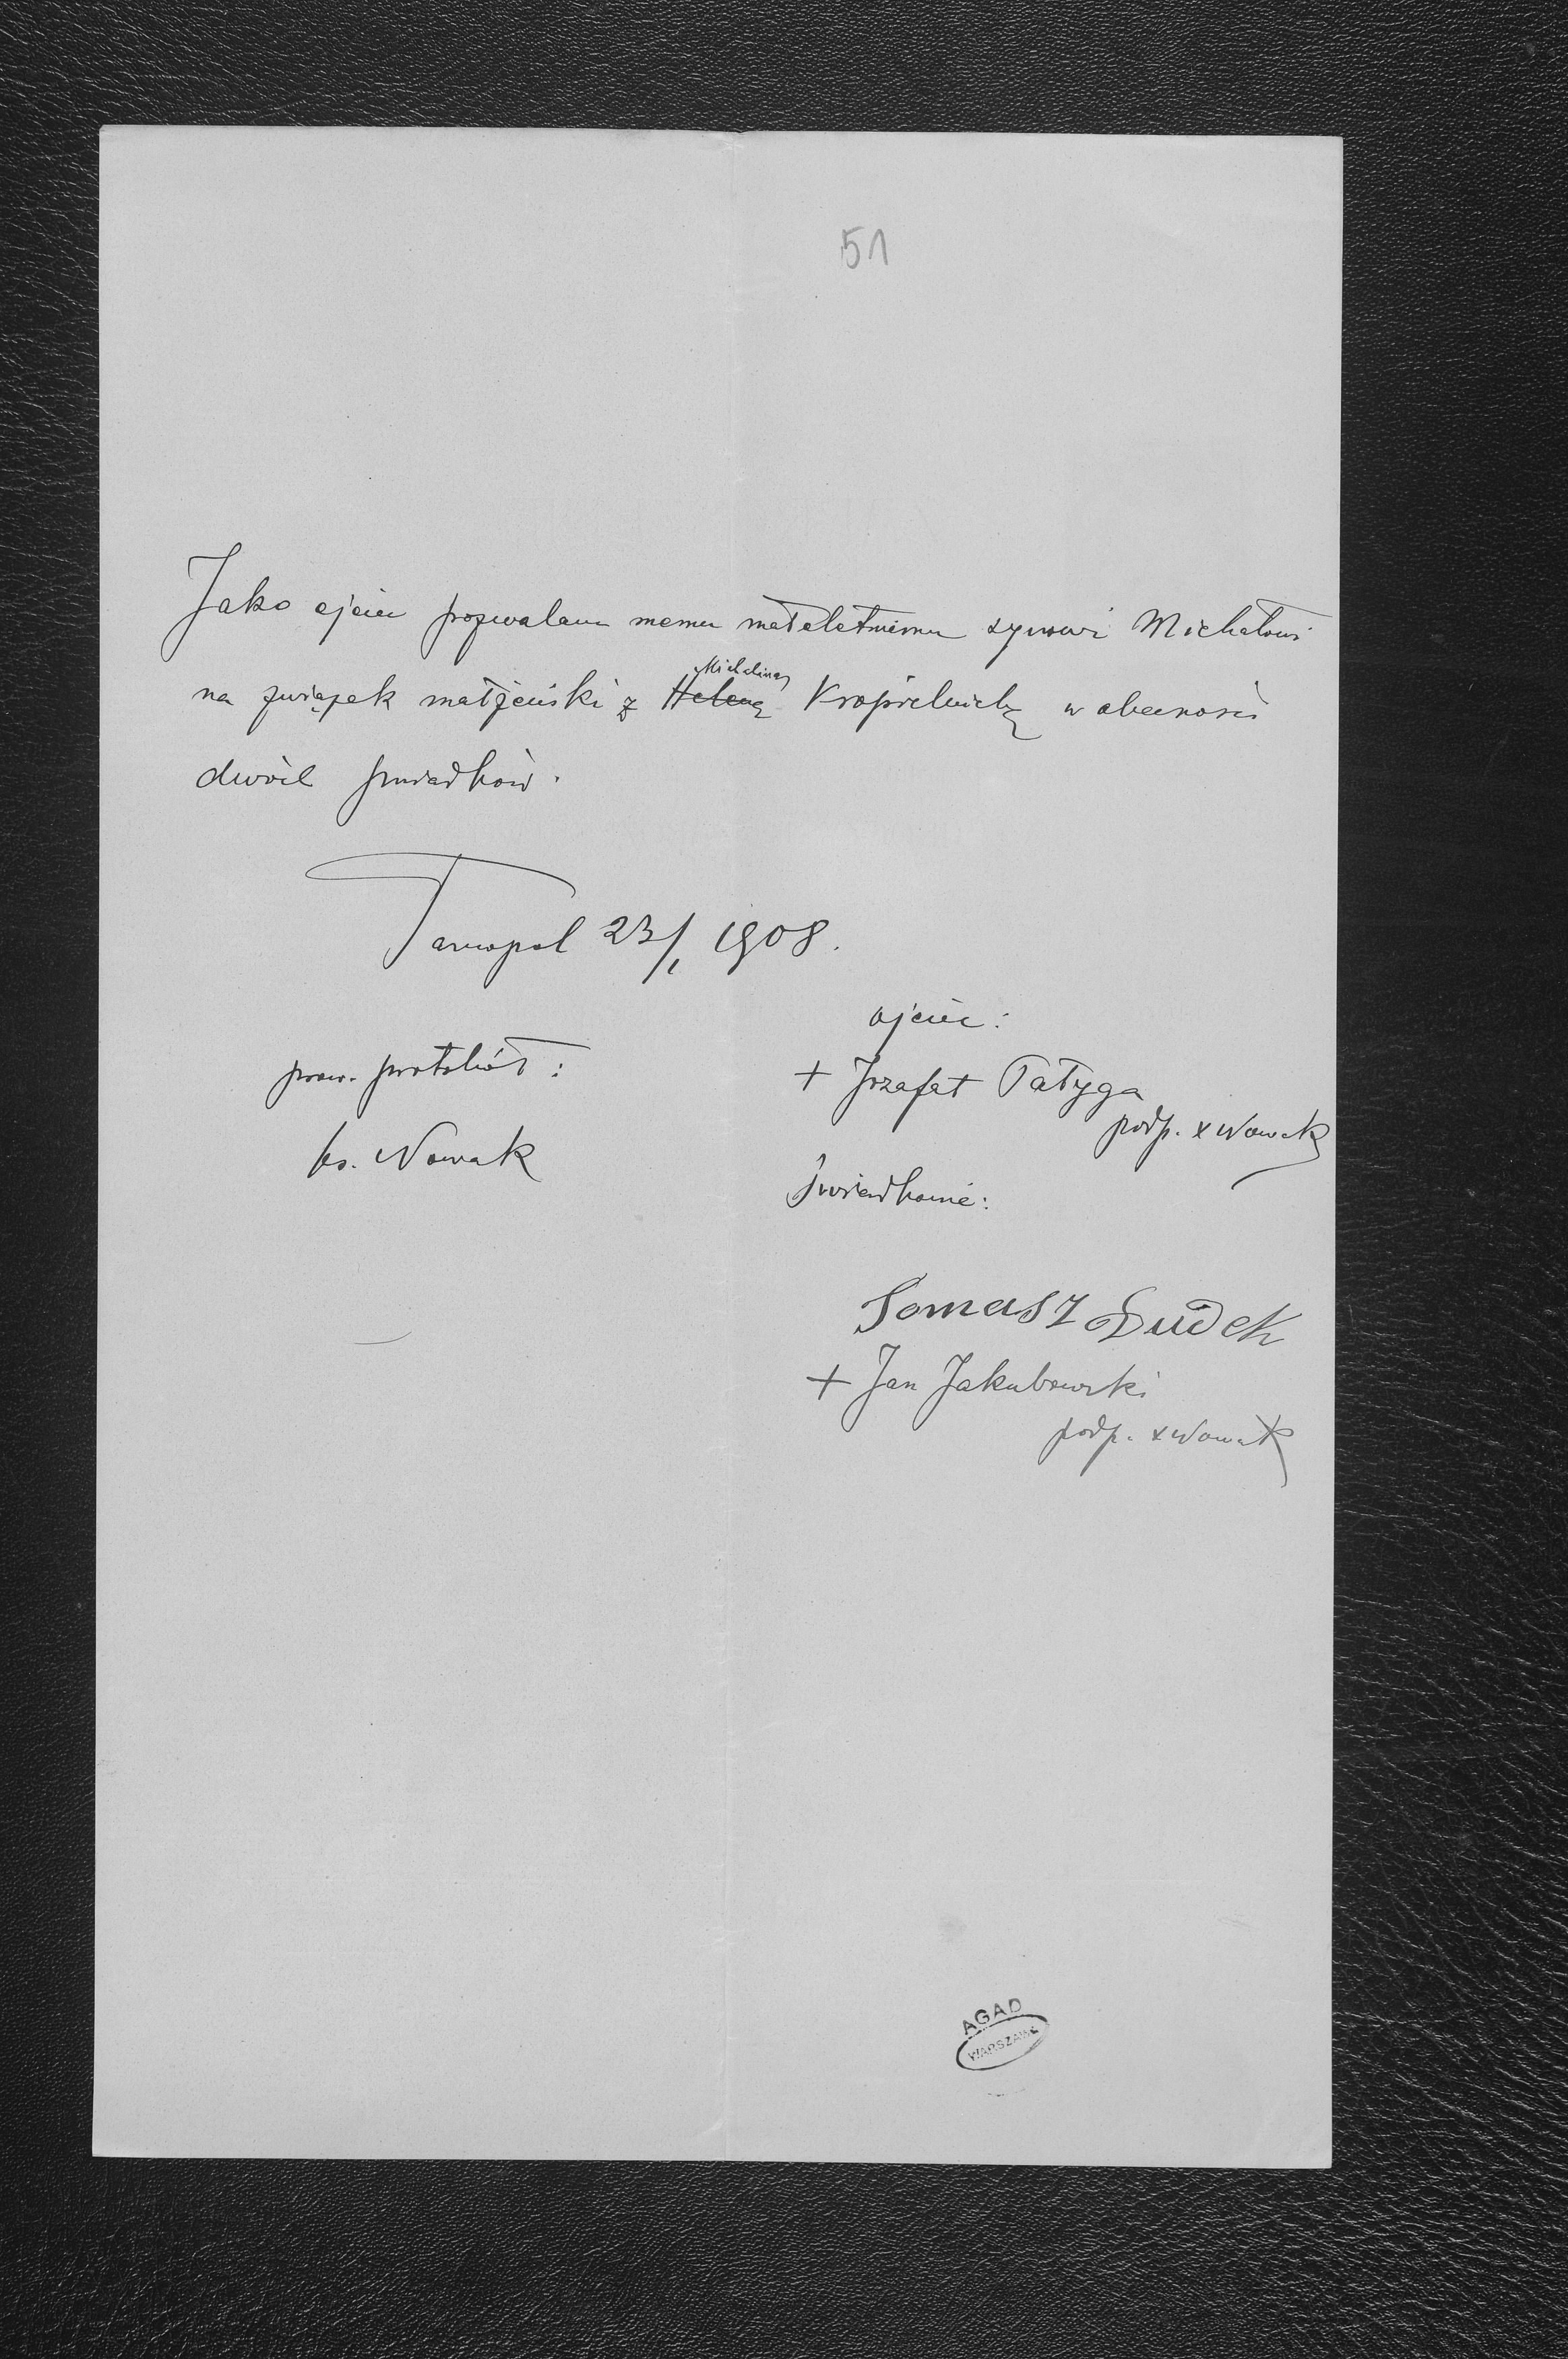 51
Jako ojciec pozwalam memu małoletniemu synowi Michałowi
Michaliną
na związek małżeński z ~~Heleną~~ Kropielnicką w obecności
dwóch świadków.
Tarnopol 23/1 1908.
ojciec:
prow. protokół:
+ Jozafat Pałyga
podp. x Nowak
ks. Nowak
świadkowie:
Tomasz Dudek
+ Jan Jakubowski
podp. x Nowak
AGAD
WARSZAWA